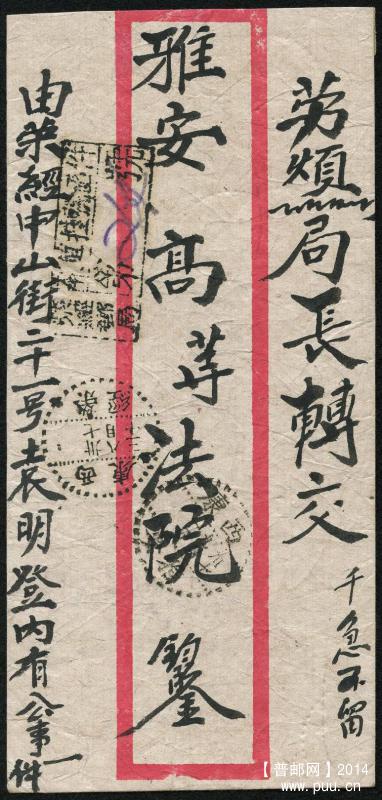 勞煩局長轉交
千急不留
雅安高等法院 鈞鑒
由荣經中山街二十一号袁明登内有公事一件
西康
榮經
【普邮网】2014
www.puu.cn